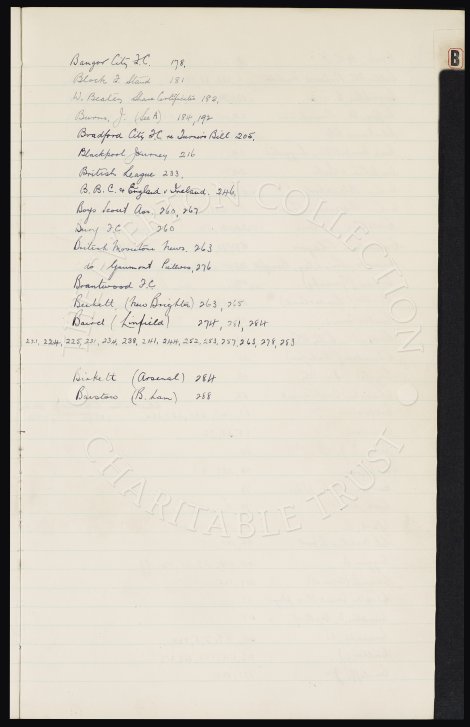 B
Bangor City F.C. 178,
Block F. Stand 181
W. Beater Share Certificates 182,
Burns, J. (See A) 184, 192
Bradford City F.C. re Turner's Bill 205,
Blackpool Journey 216
British League 233,
B.B.C. re England v Ireland. 246,
Boys Scout Assn., 260, 267
Bury F.C. 260
British Movietone News. 263
do Gaumont 276
Brantwood F.C
Birkett, (New Brighton) 263, 265
Baird (Linfield) 274, 281, 284
221, 224, 225, 231, 234, 238, 241, 244, 252, 253, 257, 263, 278, 283
Birkett (Arsenal) 284
(B. Lan) 288
COLLECTION
CHARITABLE TRUST